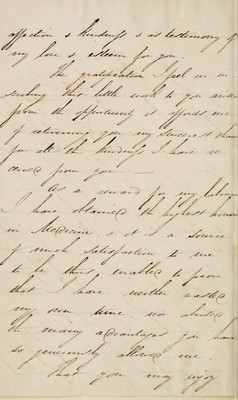 affection & kindness & as testimony of
my love & esteem for you.
The gratification I feel in in
scribing this little work to you arises
from the opportunity it affords me
of returning you my sincerest thanks
for all the kindness I have re
ceived from you —
As a reward for my labour
I have obtained the highest honor
in Medicine & it is a source
of much satisfaction to me
to be thus enabled to prove
that I have neither wasted
my own time nor abused
the many advantages you have
so generously allowed me.
That you may enjoy